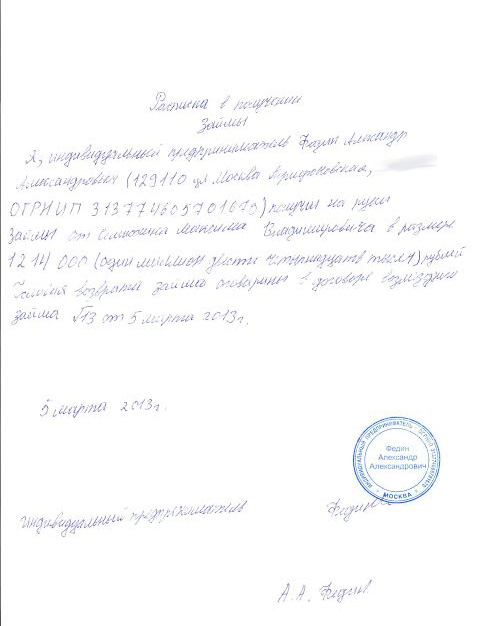 Расписка в получении
Займы
Я, индивидуальный предприниматель Федин Александр
Александрович (129110 г. Москва
ОГРНИП 313774605701673) получил на руки
Займы от Максима Владимировича в размере
1214 000 (один миллион двести четырнадцать тысяч) рублей
Условия возврата займа оговорены в договоре возмездного
займа №13 от 5 марта 2013г.
5 марта 2013г.
ИНДИВИДУАЛЬНЫЙ ПРЕДПРИНИМАТЕЛЬ
Федин
Александр
Александрович
МОСКВА
индивидуальный предприниматель
А.А. Федин